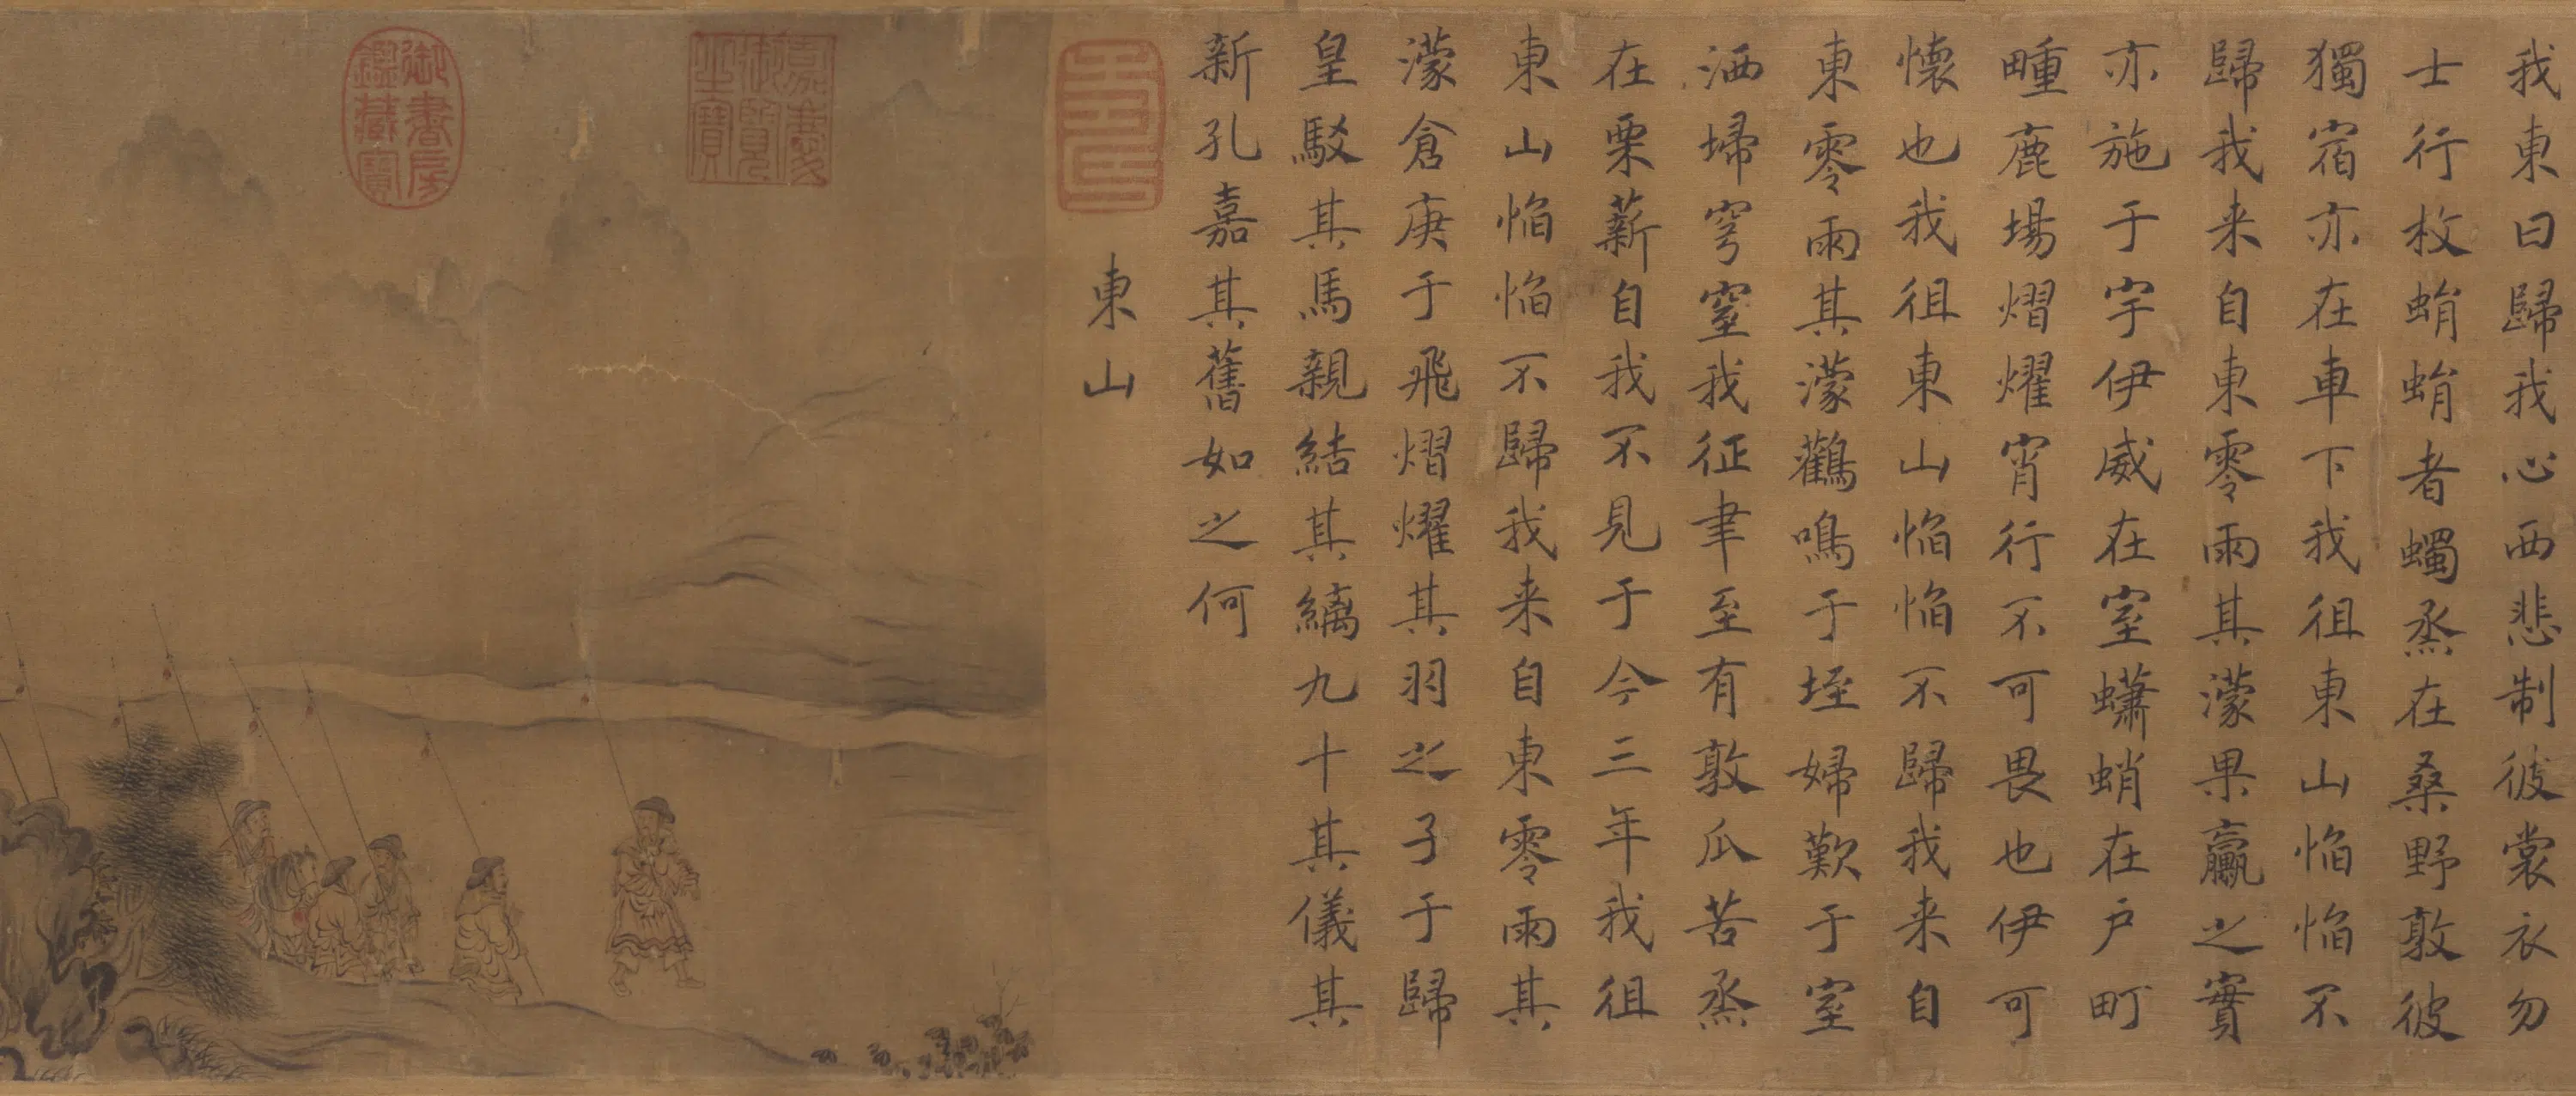 我東曰歸我心西悲制彼裳衣勿
士行枚蜎蜎者蠋烝在桑野敦彼
獨宿亦在車下我徂東山慆慆不
歸我来自東零雨其濛果臝之實
亦施于宇伊威在室蠨蛸在戶町
畽鹿場熠燿宵行不可畏也伊可
懷也我徂東山慆慆不歸我来自
東零雨其濛鸛鳴于垤婦歎于室
洒埽穹窒我征聿至有敦瓜苦烝
在栗薪自我不見于今三年我徂
東山慆慆不歸我来自東零雨其
濛倉庚于飛熠燿其羽之子于歸
皇駁其馬親結其縭九十其儀其
新孔嘉其舊如之何
東山
嘉慶
御覽
之寶
御書房
鑑藏寶